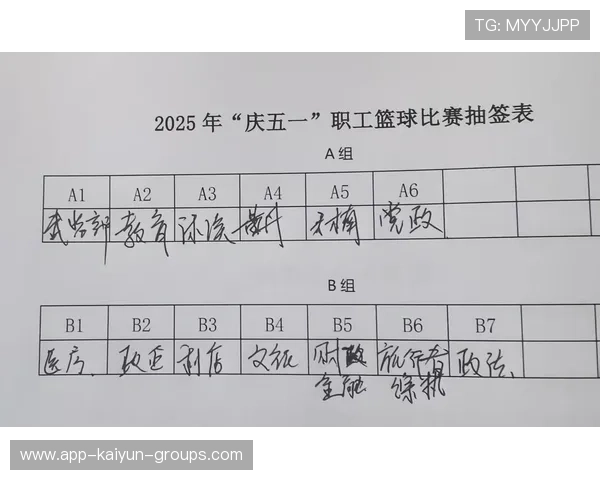 TG: MYYJJPP
2025 年“庆五一”职工篮球比赛抽签表
A 组
A1 A2 A3 A4 A5 A6
武装部 教育 环保 乡村 党政
B 组
B1 B2 B3 B4 B5 B6 B7
医疗 政企 文旅 财政 政法
金融 综执
www.app-kaiyun-groups.com